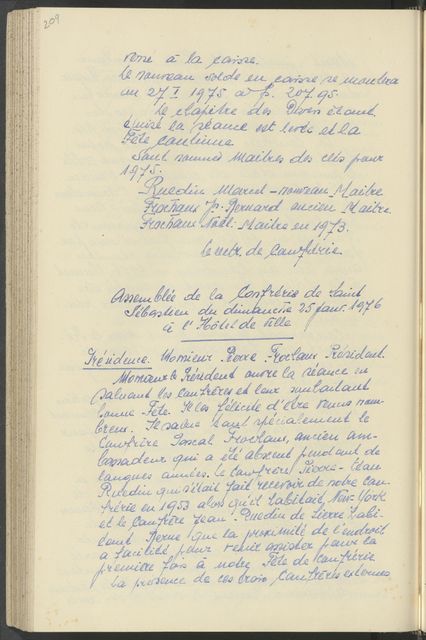 209
versé à la caisse.
Le nouveau solde en caisse se montera
au 27 I 1975 à fr. 207.95.
Le chapitre des Divers étant
épuisé la séance est levée et la
Fête continue
Sont nommés Maîtres des clés pour
1975.
Ruedin Marcel - nouveau Maître
Frochaux J. Bernard ancien Maître.
Frochaux Noël: Maître en 1973.
le secr. de Confrérie.
Assemblée de la Confrérie de Saint
Sébastien du dimanche 25 janv. 1976
à l'Hôtel de Ville
Présidence. Monsieur Pierre Frochaux Président.
Monsieur le Président ouvre la séance en
saluant les confrères et leur souhaitant
bonne Fête. Il les félicite d'être venus nom-
breux. Il salue tout spécialement le
Confrère Pascal Frochaux, ancien am-
bassadeur qui a été absent pendant de
longues années. Le confrère Pierre-
Ruedin qui s'était fait recevoir de notre con-
frérie en 1953 alors qu'il habitait New-York
et le confrère Jean Ruedin de Lierre habi-
tant Berne que la proximité de l'endroit
a facilité, pour venir assister pour la
première fois à notre Fête de confrérie
La présence de ces trois Confrères externes